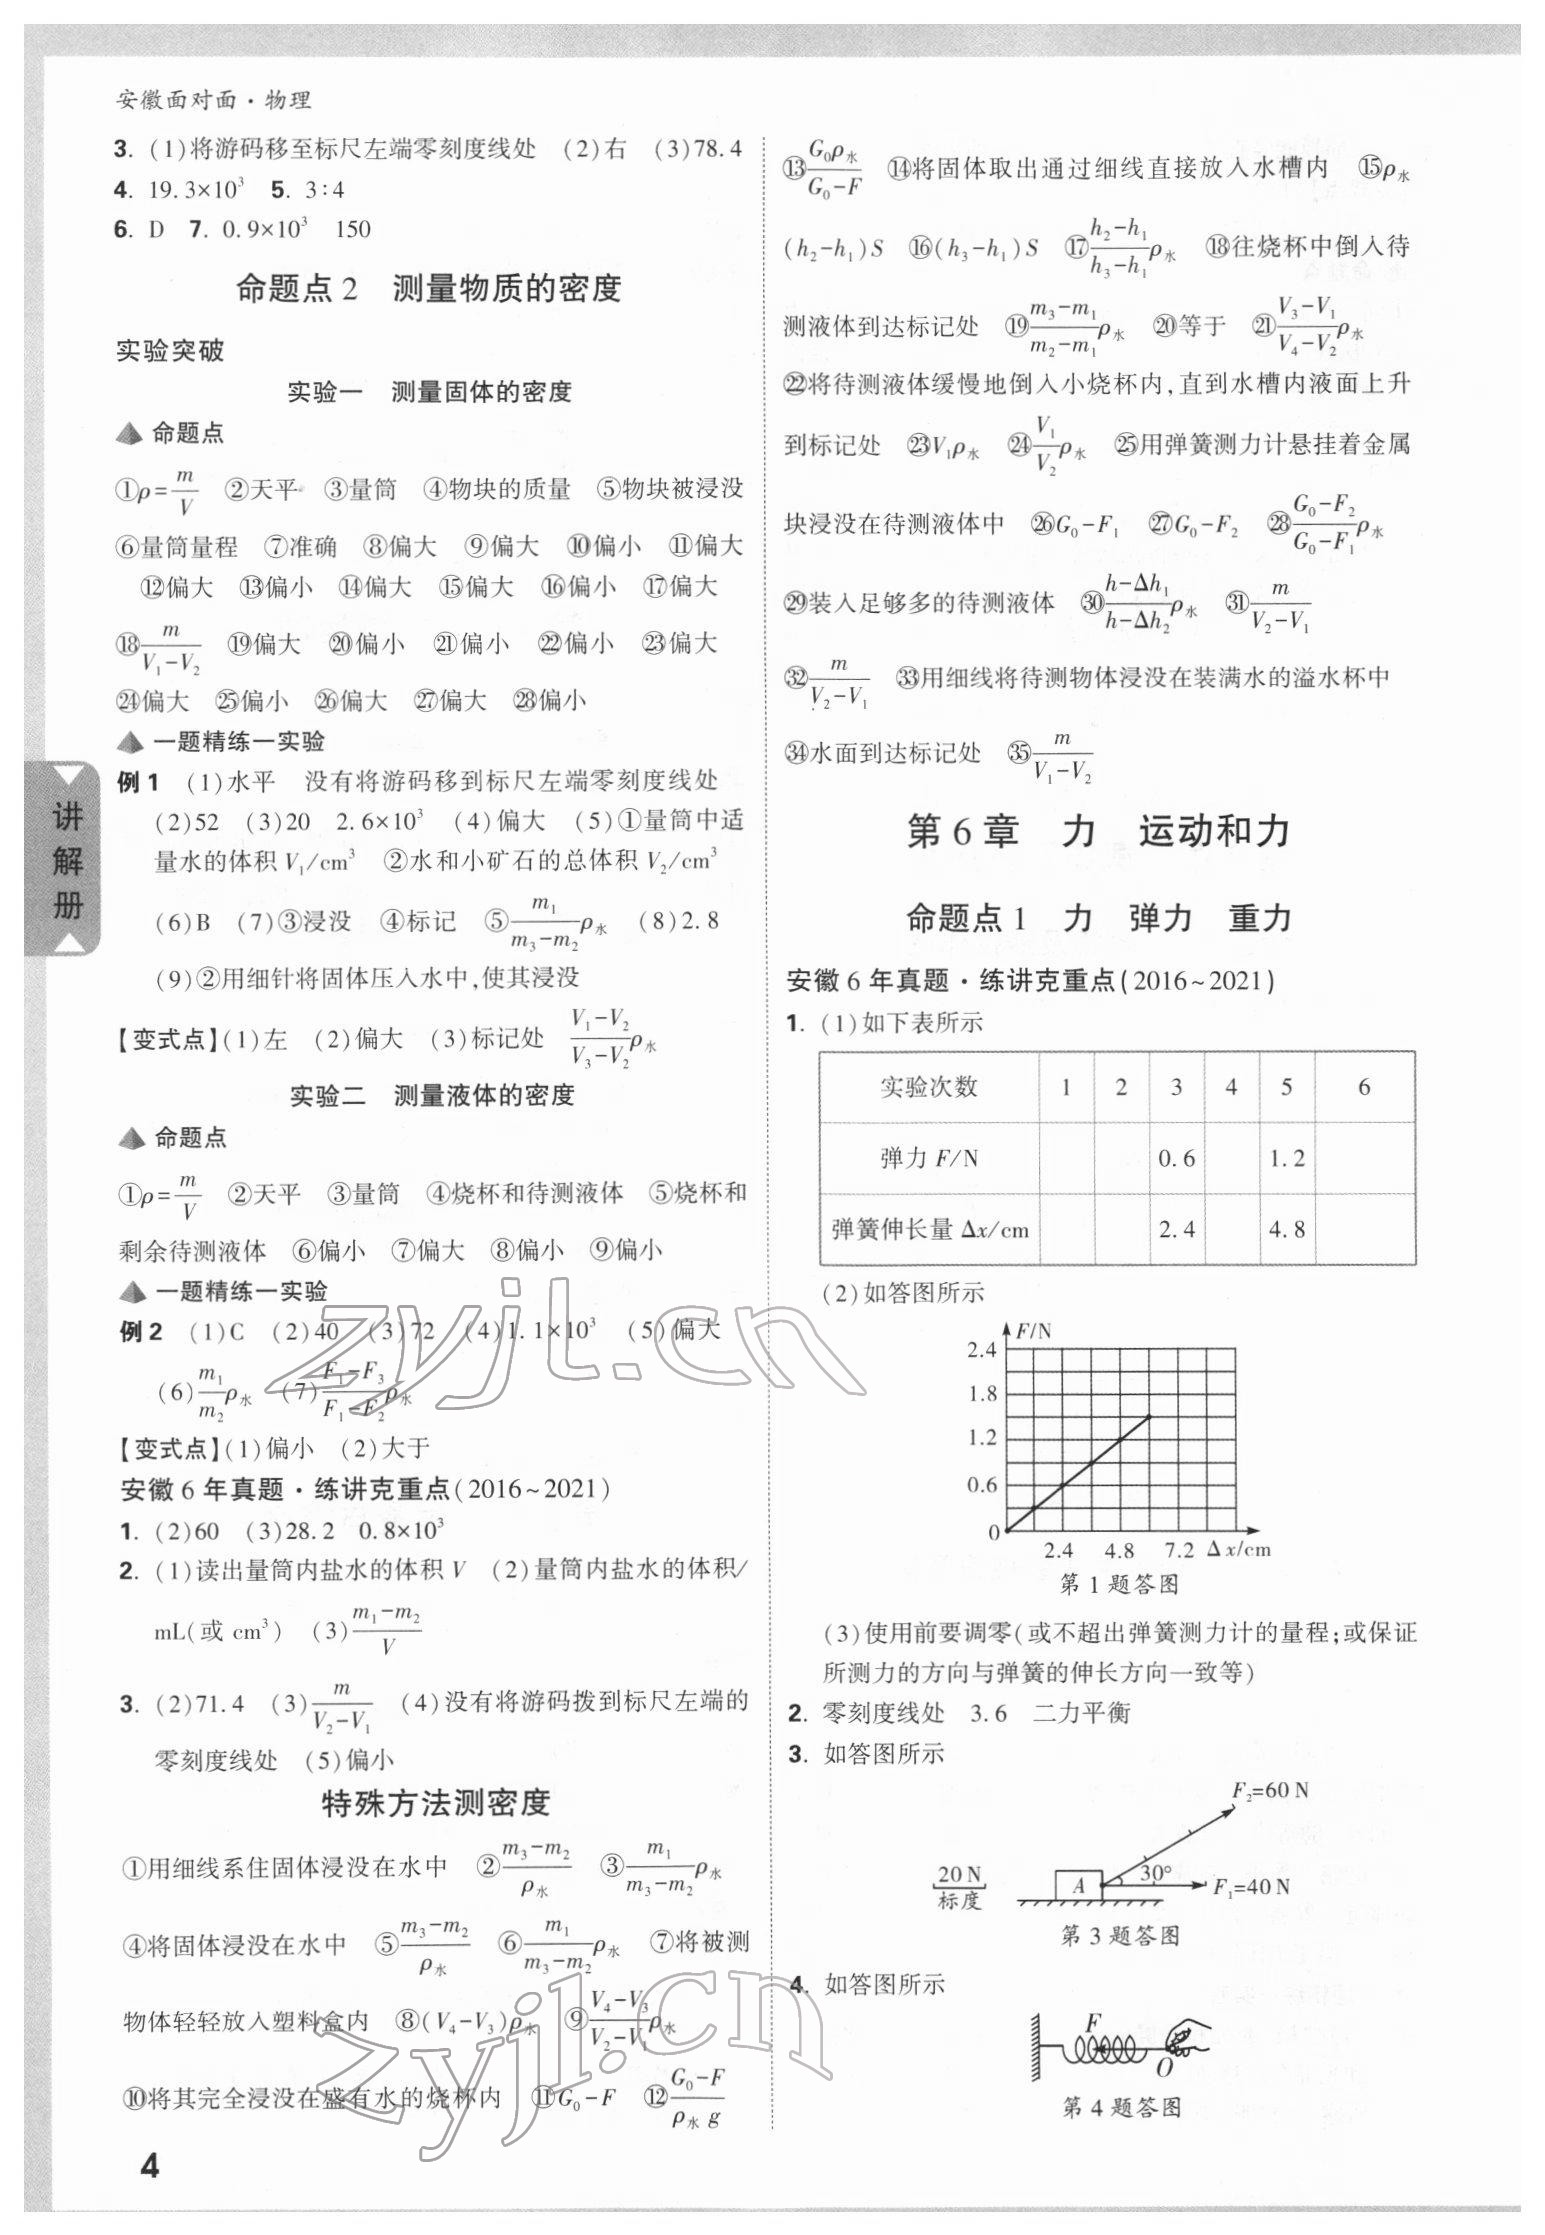 安徽面对面·物理
3. (1)将游码移至标尺左端零刻度线处 (2)右 (3)78.4
4. 19.3×10³ 5. 3:4
6. D 7. 0.9×10³ 150
命题点 2 测量物质的密度
实验突破
实验一 测量固体的密度
命题点
①ρ=m/V ②天平 ③量筒 ④物块的质量 ⑤物块被浸没
⑥量筒量程 ⑦准确 ⑧偏大 ⑨偏大 ⑩偏小 ⑪偏大
⑫偏大 ⑬偏小 ⑭偏大 ⑮偏大 ⑯偏小 ⑰偏大
⑱m/(V₁-V₂) ⑲偏大 ⑳偏小 ㉑偏小 ㉒偏小 ㉓偏大
㉔偏大 ㉕偏小 ㉖偏大 ㉗偏大 ㉘偏小
一题精练一实验
例 1 (1)水平 没有将游码移到标尺左端零刻度线处
(2)52 (3)20 2.6×10³ (4)偏大 (5)①量筒中适
量水的体积 V₁/cm³ ②水和小矿石的总体积 V₂/cm³
(6)B (7)③浸没 ④标记 ⑤m₁/(m₃-m₂)ρ水 (8)2.8
(9)②用细针将固体压入水中,使其浸没
【变式点】(1)左 (2)偏大 (3)标记处 (V₁-V₂)/(V₃-V₂)ρ水
实验二 测量液体的密度
命题点
①ρ=m/V ②天平 ③量筒 ④烧杯和待测液体 ⑤烧杯和
剩余待测液体 ⑥偏小 ⑦偏大 ⑧偏小 ⑨偏小
一题精练一实验
例 2 (1)C (2)40 (3)72 (4)1.1×10³ (5)偏大
(6)m₁/m₂ρ水 (7)(F₁-F₃)/(F₁-F₂)ρ水
【变式点】(1)偏小 (2)大于
安徽 6 年真题·练讲克重点(2016~2021)
1. (2)60 (3)28.2 0.8×10³
2. (1)读出量筒内盐水的体积 V (2)量筒内盐水的体积/
mL(或 cm³) (3)(m₁-m₂)/V
3. (2)71.4 (3)m/(V₂-V₁) (4)没有将游码拨到标尺左端的
零刻度线处 (5)偏小
特殊方法测密度
①用细线系住固体浸没在水中 ②(m₃-m₂)/ρ水 ③m₁/(m₃-m₂)ρ水
④将固体浸没在水中 ⑤(m₃-m₂)/ρ水 ⑥m₁/(m₃-m₂)ρ水 ⑦将被测
物体轻轻放入塑料盒内 ⑧(V₄-V₃)ρ水 ⑨(V₄-V₃)/(V₂-V₁)ρ水
⑩将其完全浸没在盛有水的烧杯内 ⑪G₀-F ⑫(G₀-F)/(ρ水 g)
4
讲解册
⑬G₀ρ水/(G₀-F) ⑭将固体取出通过细线直接放入水槽内 ⑮ρ水
(h₂-h₁)S ⑯(h₃-h₁)S ⑰(h₂-h₁)/(h₃-h₁)ρ水 ⑱往烧杯中倒入待
测液体到达标记处 ⑲(m₃-m₁)/(m₂-m₁)ρ水 ⑳等于 ㉑(V₃-V₁)/(V₄-V₂)ρ水
㉒将待测液体缓慢地倒入小烧杯内,直到水槽内液面上升
到标记处 ㉓V₁ρ水 ㉔V₁/V₂ρ水 ㉕用弹簧测力计悬挂着金属
块浸没在待测液体中 ㉖G₀-F₁ ㉗G₀-F₂ ㉘(G₀-F₂)/(G₀-F₁)ρ水
㉙装入足够多的待测液体 ㉚(h-Δh₁)/(h-Δh₂)ρ水 ㉛m/(V₂-V₁)
㉜m/(V₂-V₁) ㉝用细线将待测物体浸没在装满水的溢水杯中
㉞水面到达标记处 ㉟m/(V₁-V₂)
第 6 章 力 运动和力
命题点 1 力 弹力 重力
安徽 6 年真题·练讲克重点(2016~2021)
1. (1)如下表所示
实验次数 1 2 3 4 5 6
弹力 F/N 0.6 1.2
弹簧伸长量 Δx/cm 2.4 4.8
(2)如答图所示
F/N
2.4
1.8
1.2
0.6
0
2.4 4.8 7.2 Δx/cm
第 1 题答图
(3)使用前要调零(或不超出弹簧测力计的量程;或保证
所测力的方向与弹簧的伸长方向一致等)
2. 零刻度线处 3.6 二力平衡
3. 如答图所示
F₂=60 N
20 N
标度
A
30°
F₁=40 N
第 3 题答图
4. 如答图所示
F
O
第 4 题答图
zyjl.cn
zyjl.cn